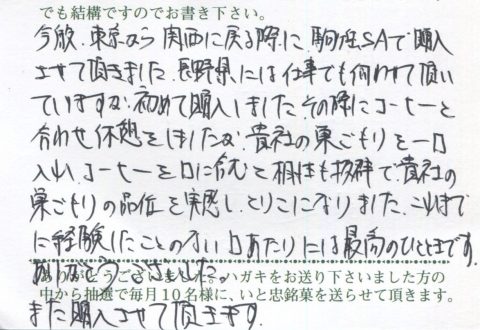 でも結構ですのでお書き下さい。
今般、東京から関西に戻る際に、駒ヶ岳SAで購入
させて頂きました。長野県には仕事でも伺わせて頂い
ていますが、初めて購入しました。その際にコーヒーと
合わせ休憩をしましたが、貴社の巣ごもりを一口
入れ、コーヒーを口に含むと相性も抜群で貴社の
巣ごもりの品位を実感し、とりこになりました。これまで
に経験したことのない口あたりには最高のひとときです。
ありがとうございました。
ありがとうございました。ハガキをお送り下さいました方の
中から抽選で毎月10名様に、いと忠銘菓を送らせて頂きます。
また購入させて頂きます。